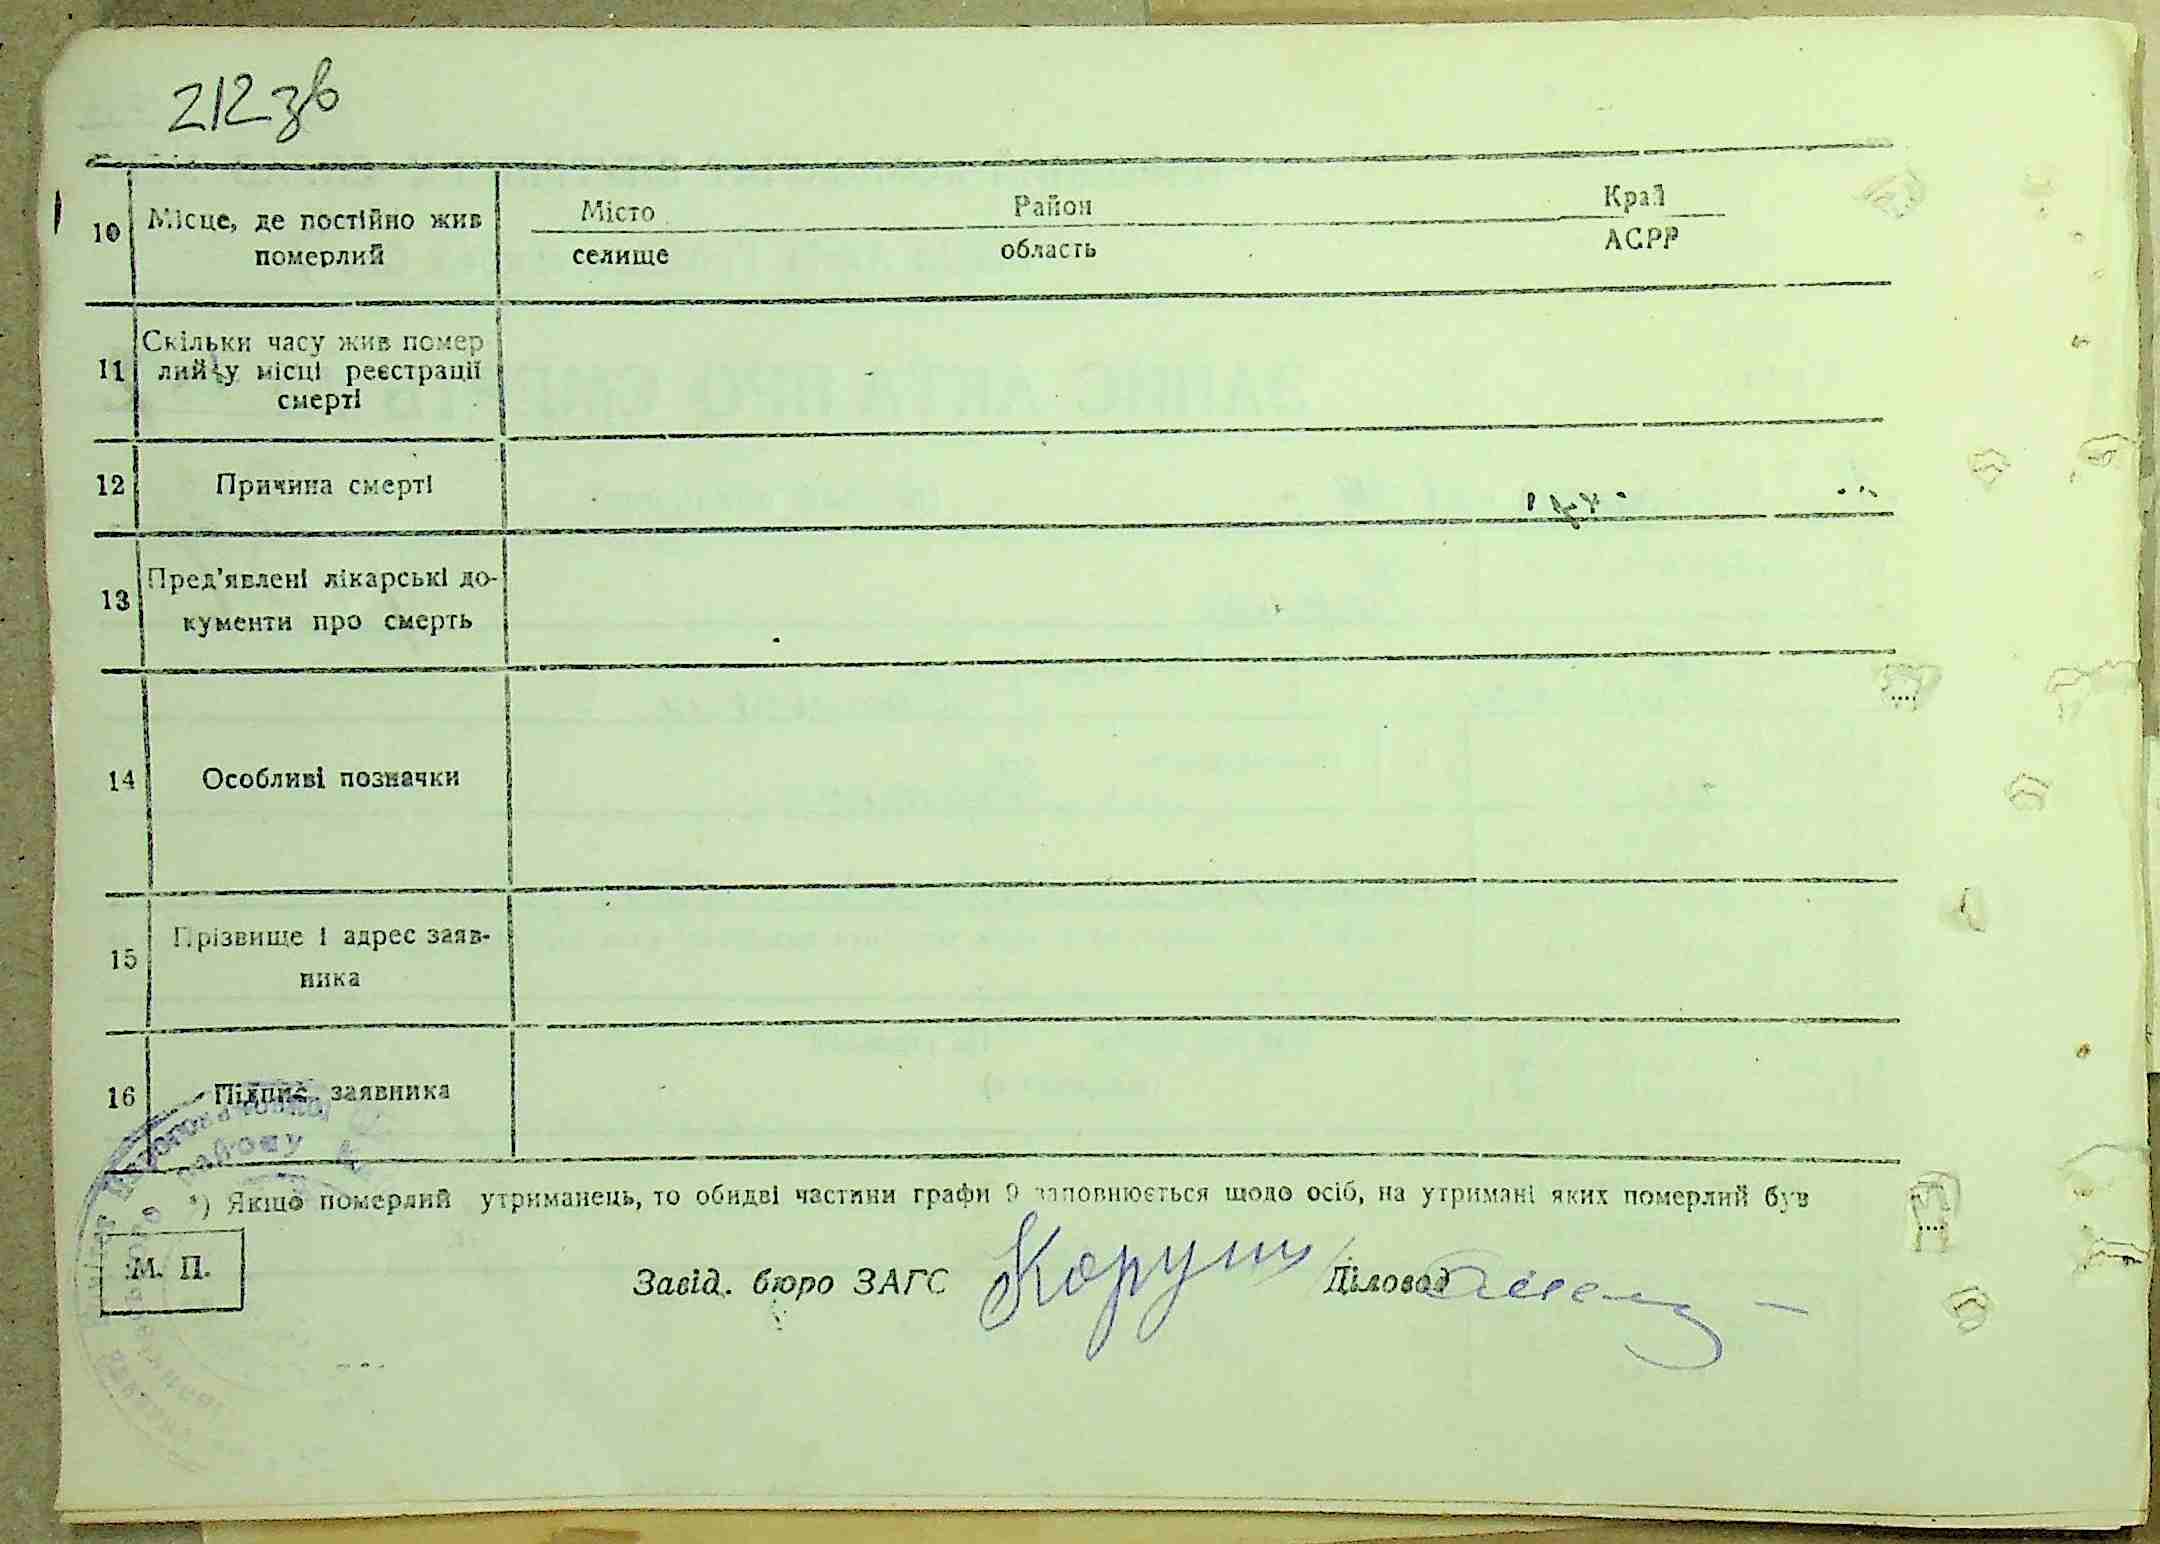 212 зв
10 Місце, де постійно жив
померлий
Місто Район Край
селище область АСРР
11 Скільки часу жив помер
лий у місці реєстрації
смерті
12 Причина смерті
13 Пред'явлені лікарські до-
кументи про смерть
14 Особливі позначки
15 Прізвище і адрес заяв-
ника
16 Підпис заявника
району
*) Якщо померлий утриманець, то обидві частини графи 9 заповнюється щодо осіб, на утримані яких померлий був
М. П.
Завід. бюро ЗАГС Діловод